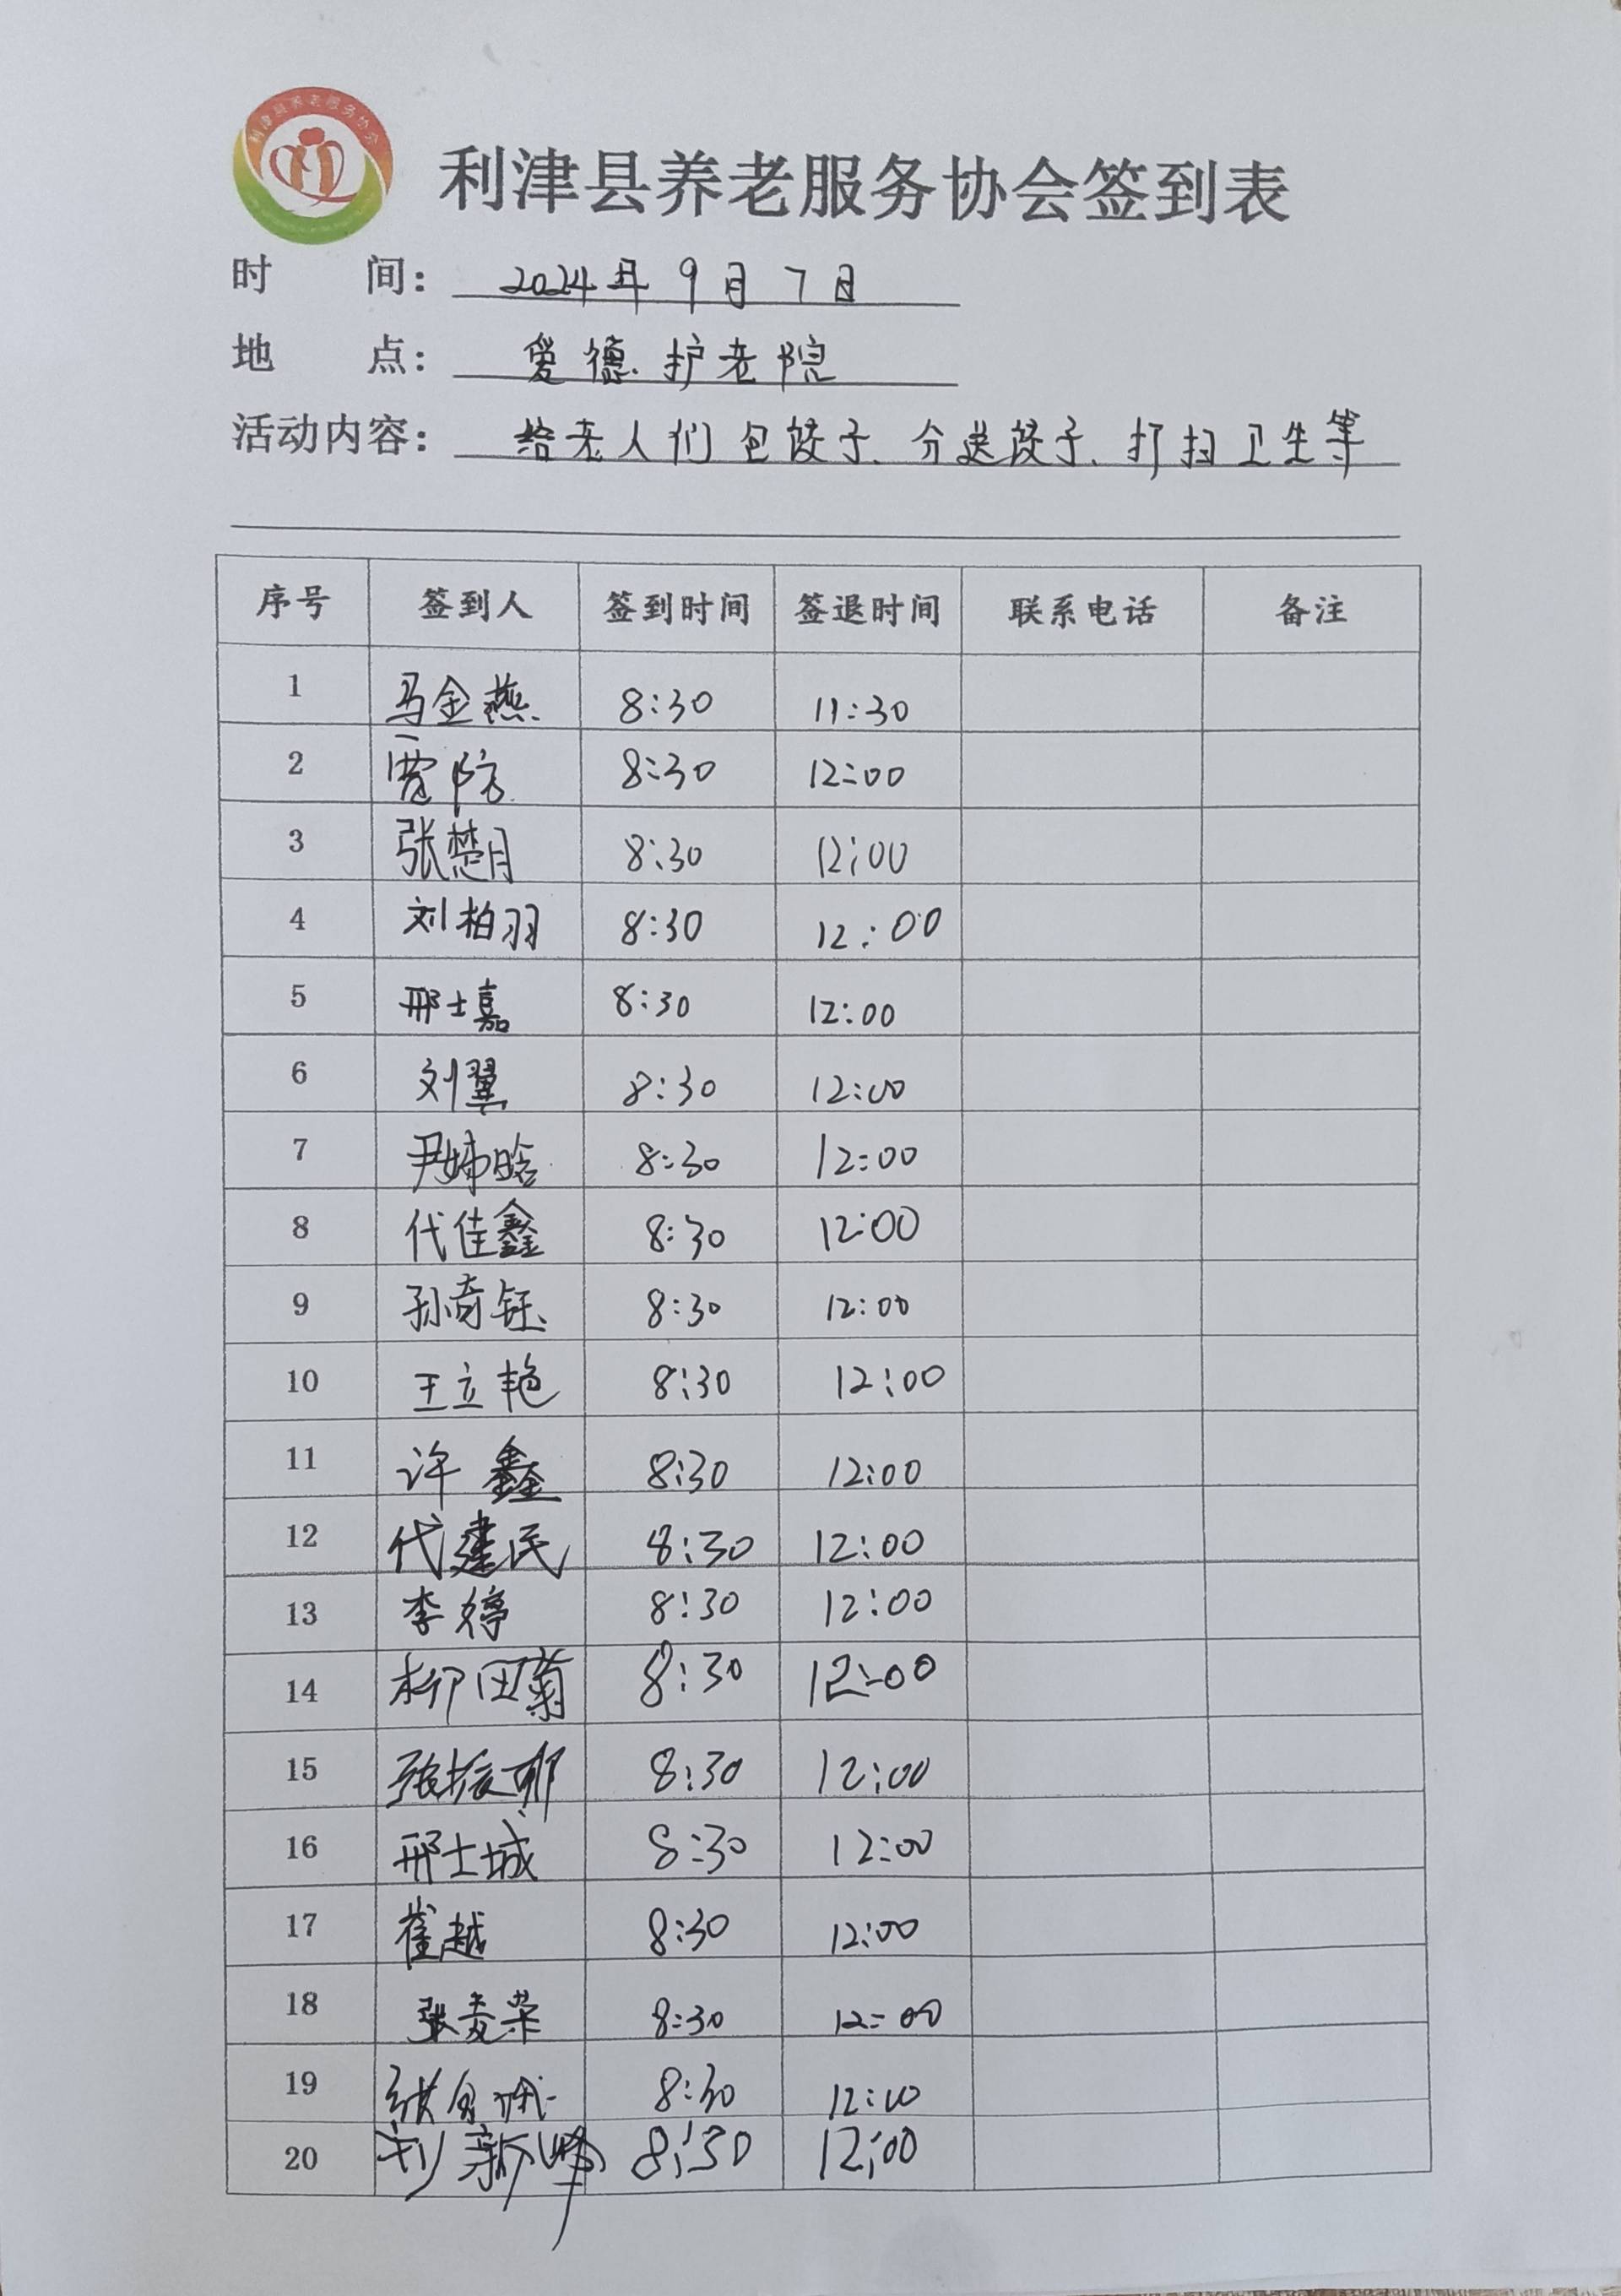 利津县养老服务协会
利津县养老服务协会签到表
时 间: 2024年9月7日
地 点: 爱德护老院
活动内容: 给老人们包饺子、分送饺子、打扫卫生等
序号 签到人 签到时间 签退时间 联系电话 备注
1 马金燕 8:30 11:30
2 贾防 8:30 12:00
3 张楚月 8:30 12:00
4 刘柏羽 8:30 12:00
5 邢士嘉 8:30 12:00
6 刘翼 8:30 12:00
7 尹姊晗 8:30 12:00
8 代佳鑫 8:30 12:00
9 孙奇钰 8:30 12:00
10 王立艳 8:30 12:00
11 许鑫 8:30 12:00
12 代建民 8:30 12:00
13 李婷 8:30 12:00
14 柳田菊 8:30 12:00
15 张振 8:30 12:00
16 邢士城 8:30 12:00
17 崔越 8:30 12:00
18 张荣 8:30 12:00
19 张 8:30 12:00
20 刘新峰 8:30 12:00